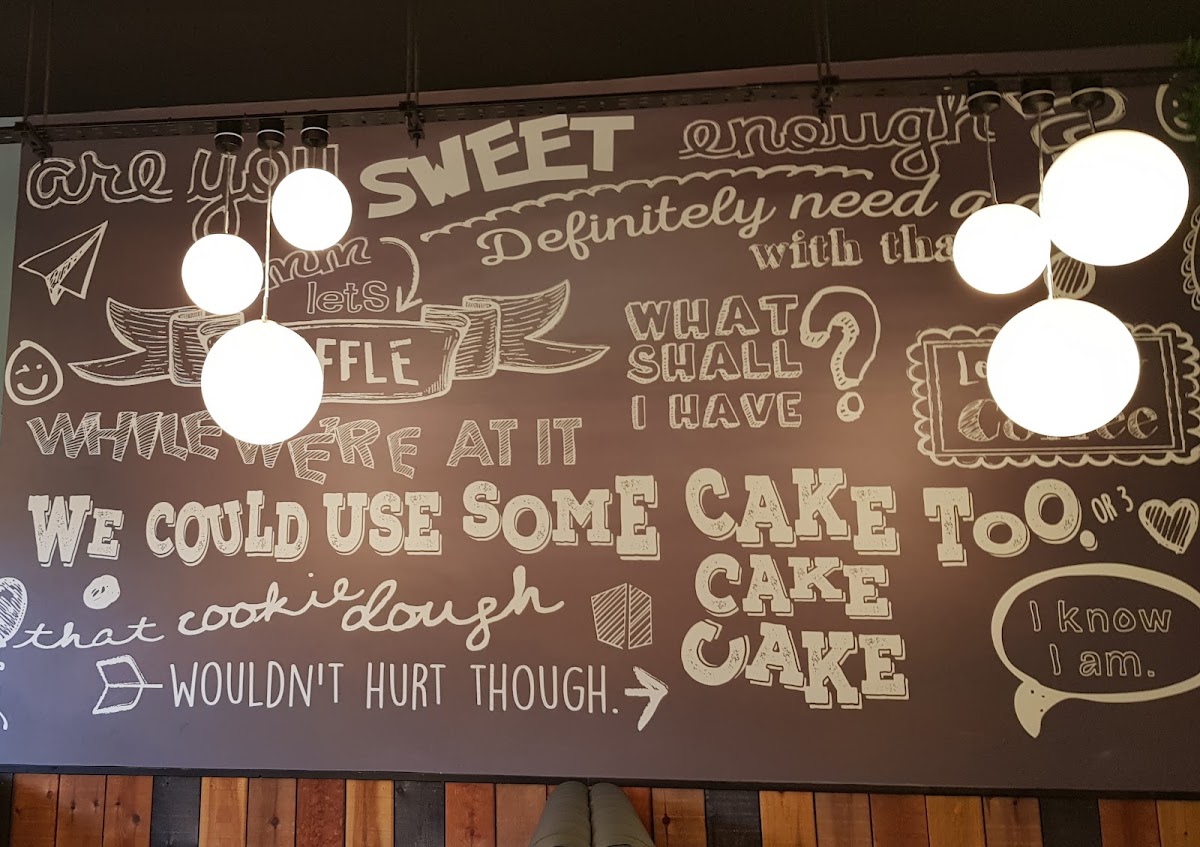 are you SWEET enough?
Definitely need a
with
lets
WHILE WE'RE AT IT
WHAT
SHALL
I HAVE ?
Coffee
WE COULD USE SOME CAKE TOO. OR 3
CAKE
CAKE
that cookie dough
WOULDN'T HURT THOUGH.
I know
I am.